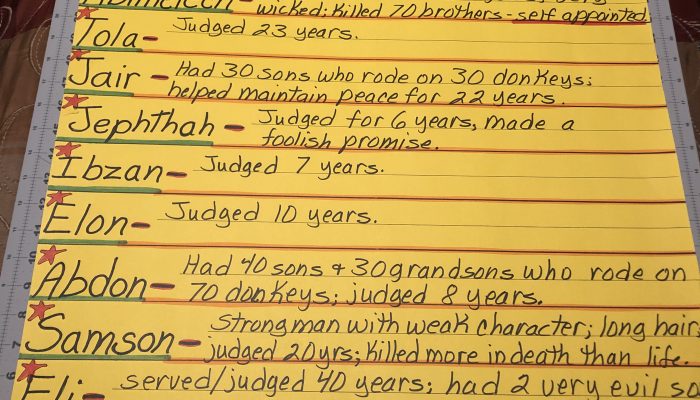 wicked; killed 70 brothers - self appointed
Tola - Judged 23 years.
Jair - Had 30 sons who rode on 30 donkeys;
helped maintain peace for 22 years.
Jephthah - Judged for 6 years, made a
foolish promise.
Ibzan - Judged 7 years.
Elon - Judged 10 years.
Abdon - Had 40 sons + 30 grandsons who rode on
70 donkeys; judged 8 years.
Samson - Strongman with weak character; long hair;
judged 20 yrs; killed more in death than life.
Eli - served/judged 40 years; had 2 very evil so